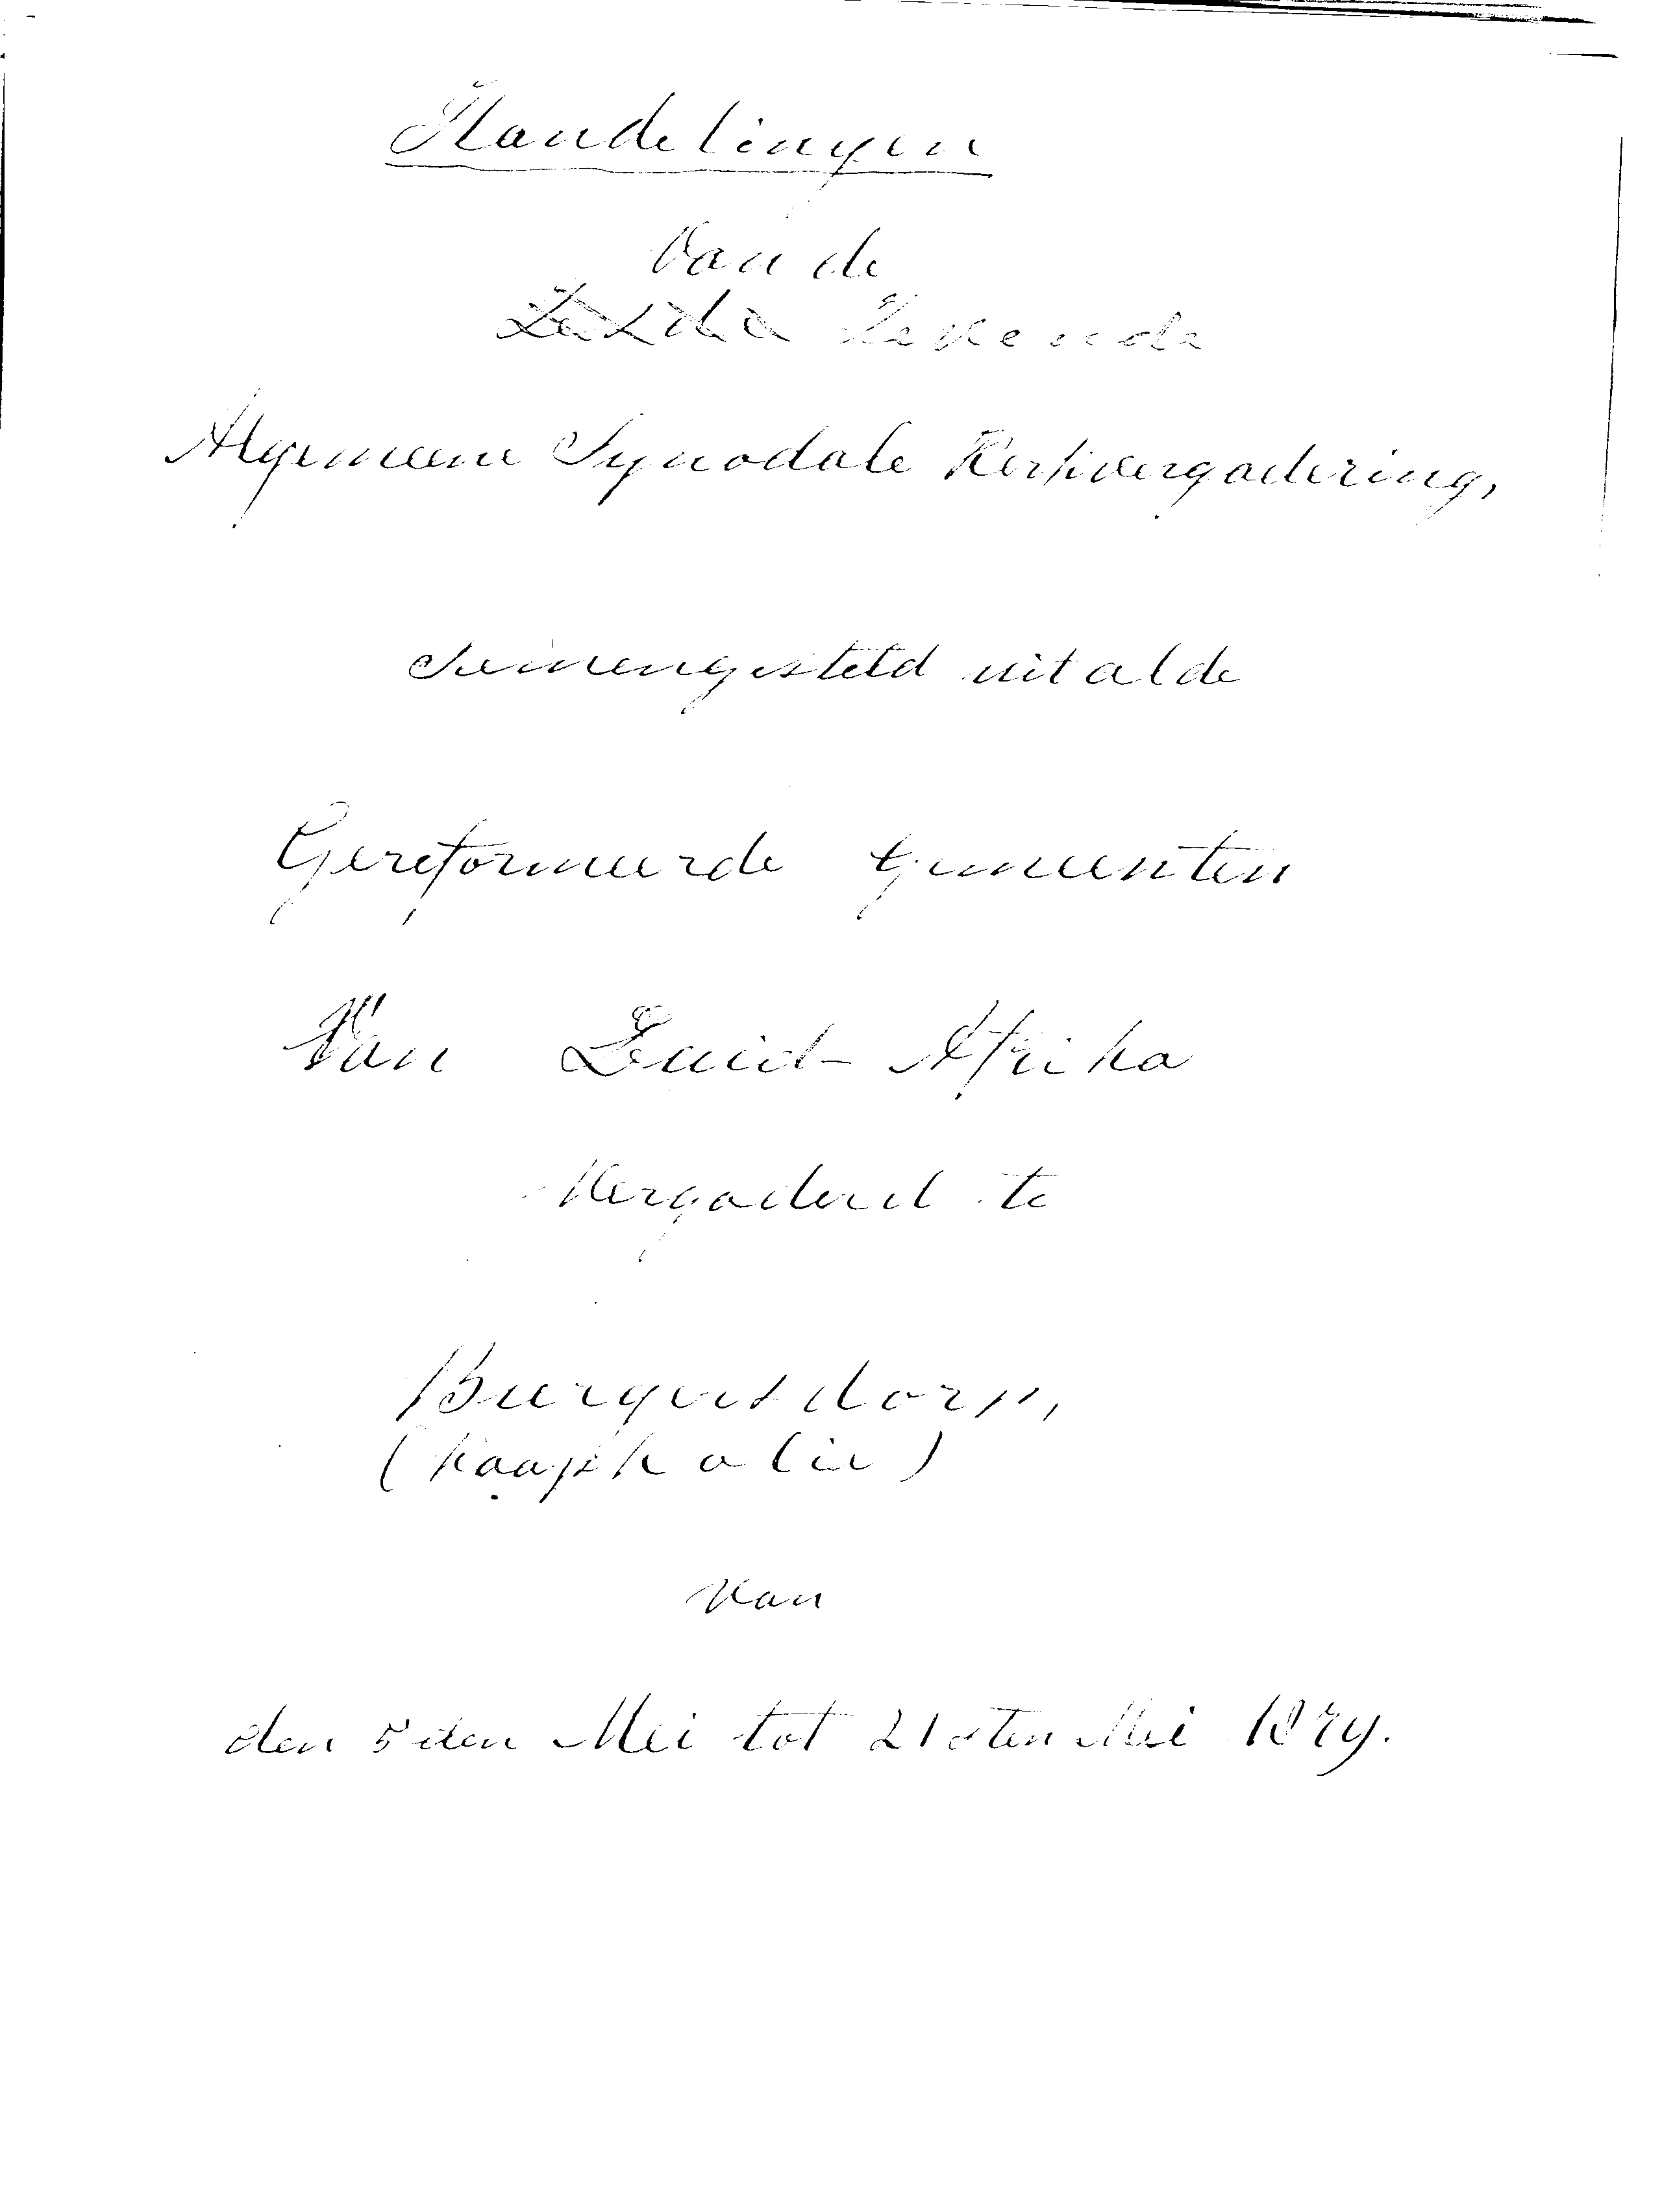 Handelingen
Van de
Zevende
Algemeene Synodale Kerkvergadering,
Samengesteld uit al de
Gereformeerde Gemeenten
Van Zuid-Afrika
Vergaderd te
Burgersdorp,
(Kaapkolie)
Van
den 5den Mei tot 21sten Mei 1879.